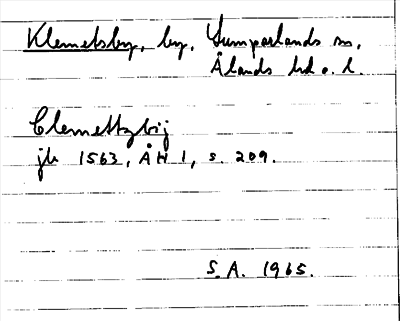 Klemetsby, by, Lumparlands sn,
Ålands hd o. l.
Clemettzbÿ
jb 1563, ÅH 1, s. 209.
S.A. 1965.